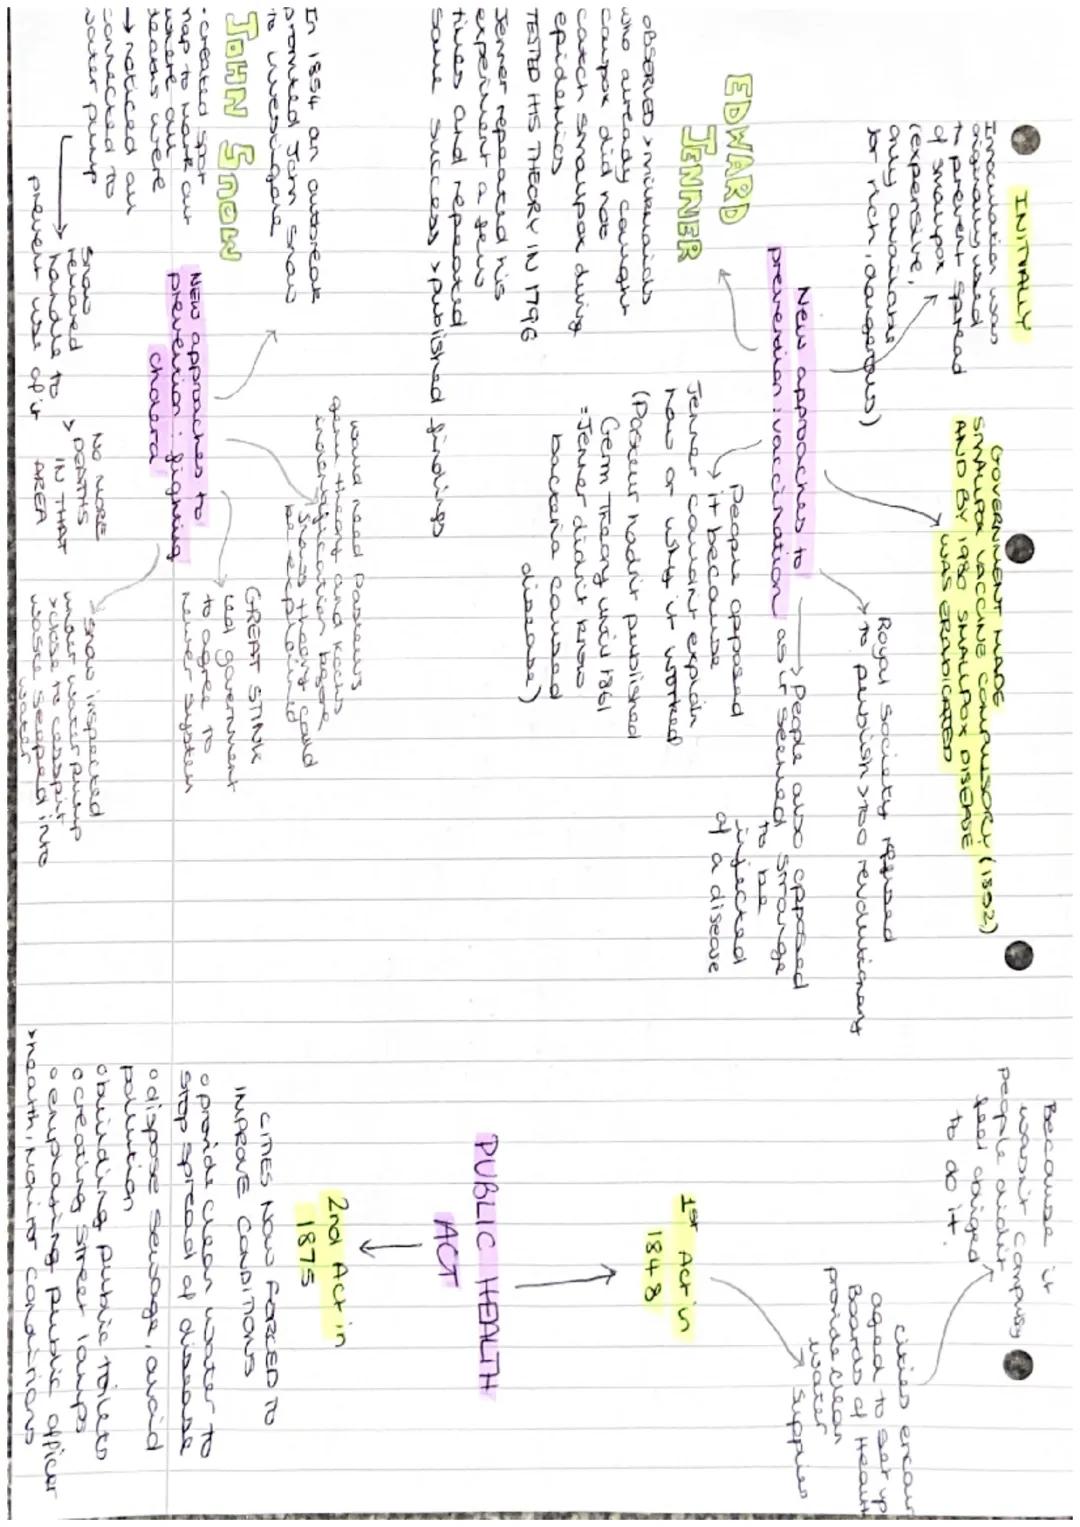 INITIALLY
Innoculation was
originally used
to prevent spread
of smallpox
(expensive,
only available
for rich, dangerous)
GOVERNMENT MADE
SMALLPOX VACCINE COMPULSORY (1852)
AND BY 1980 SMALLPOX DISEASE
WAS ERADICATED
Royal Society refused
to publish > too revolutionary
New approaches to
prevention: vaccination
→ People also opposed
as it seemed strange
to be
injected
of a disease
EDWARD
JENNER
People opposed
it because
Jenner couldn't explain
how or why it worked
(Pasteur hadn't published
Germ Theory until 1861
=Jenner didn't know
bacteria caused
disease)
OBSERVED > milkmaids
who already caught
cowpox did not
catch smallpox during
epidemics
TESTED HIS THEORY IN 1796
Jenner repeated his
experiment a few
times and repeated
same success > published findings
In 1854 an outbreak
promted John Snow
to investigate
JOHN SNOW
• created spot
map to mark out
where all
deaths were
→ noticed all
connected to
water pump
Snow
removed
handle to
prevent use of it
> NO MORE
DEATHS
IN THAT
AREA
New approaches to
prevention: fighting
cholera
would need Pasteurs
germ theory and Kochs
before
Snows theory could
be explained
GREAT STINK
led government
to agree to
newer system
Snow inspected
under water pump
> close to cesspit
waste seeped into
water
Because it
wasn't
people didn't
feel obliged
to do it.
cities
to set up
Boards of Health
provide clean
water
supplies
1st Act in
1848
PUBLIC HEALTH
ACT
2nd Act in
1875
CITIES NOW FORCED TO
IMPROVE CONDITIONS
o provide clean water to
stop spread of disease
o dispose sewage, avoid
pollution
o building public toilets
o creating street lamps
o employing public officer
> health, monitor conditions